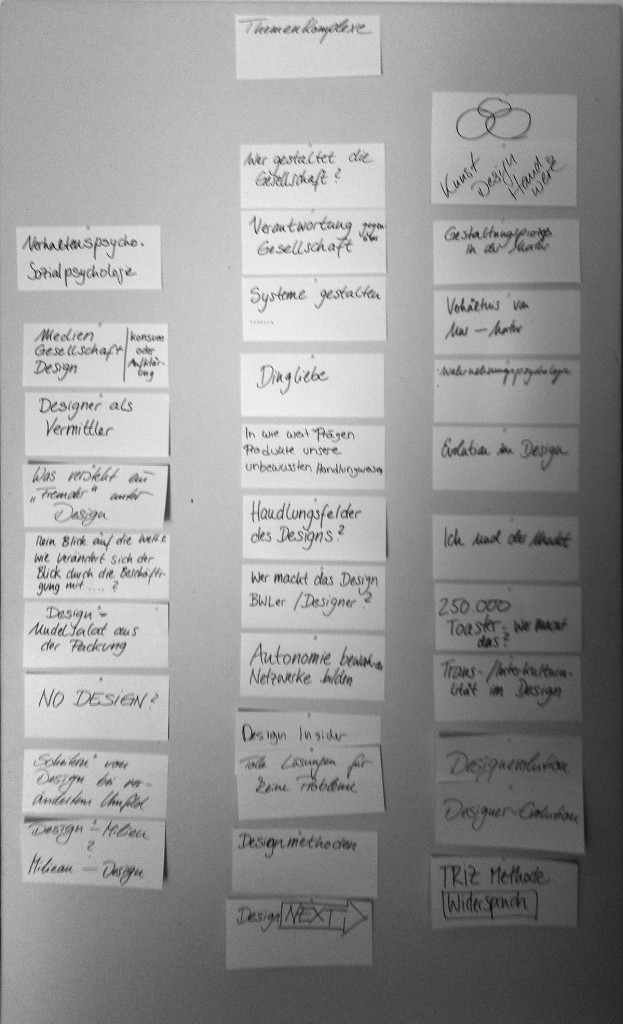 Themenkomplexe
Verhaltenspsycho.
Sozialpsychologie
Medien
Gesellschaft
Design
Konsum
oder
Aufklär-
ung
Designer als
Vermittler
Was versteht ein
"Fremder" unter
Design
Mein Blick auf die Welt &
wie verändert sich der
Blick durch die Beschäfti-
gung mit .... ?
Design =
Nudelsalat aus
der Packung
NO DESIGN?
Scheitern von
Design bei ver-
ändertem Umfeld
Design - Milieu
?
Milieau - Design
Wer gestaltet die
Gesellschaft?
Verantwortung gegen-
über
Gesellschaft
Systeme gestalten
.......
Dingliebe
In wie weit Prägen
Produkte unsere
unbewussten Handlungsweisen
Handlungsfelder
des Designs?
Wer macht das Design
BWLer / Designer ?
Autonomie bewahren
Netzwerke bilden
Design Insider
Tolle Lösungen für
keine Probleme
Designmethoden
Design NEXT
Kunst
Design
Hand
werk
Gestaltungsprinzip
in der Natur
Verhältnis von
- Natur
Wahrnehmungspsychologie
Evolution im Design
Ich und der Markt
250.000
Toaster - wer macht
das?
Trans-/Interkultura-
lität im Design
Designevolution
Designer-Evolution
TRIZ Methode
Widerspruch